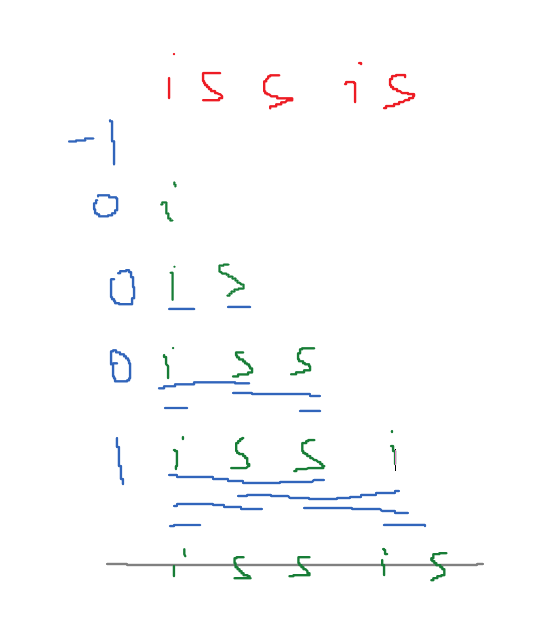 i s s i s
-1
0 i
0 i s
0 i s s
1 i s s i
i s s i s